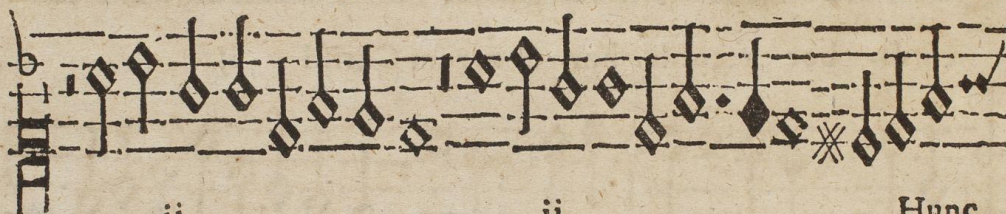 ij ij Hunc